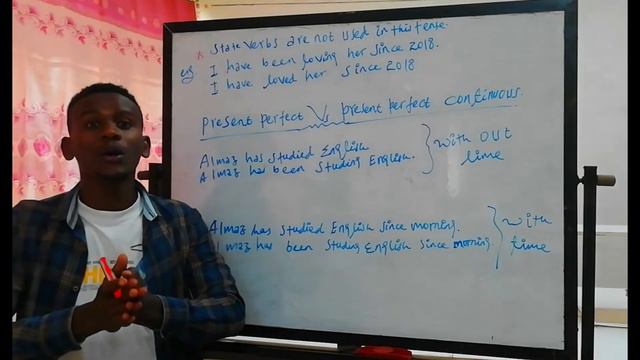 * State verbs are not used in this tense.
eg I have been loving her since 2018.
I have loved her since 2018
present perfect Vs present perfect continuous.
Almaz has studied English
Almaz has been studing English. } with out time
Almaz has studied English since morning.
Almaz has been studing English since morning } with time